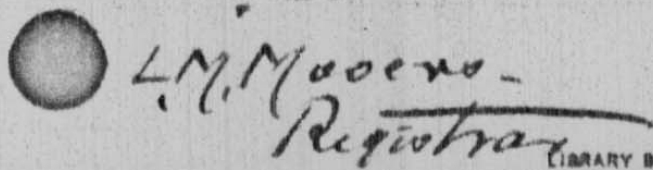 L.M. Mooers-
Registrar
LIBRARY B